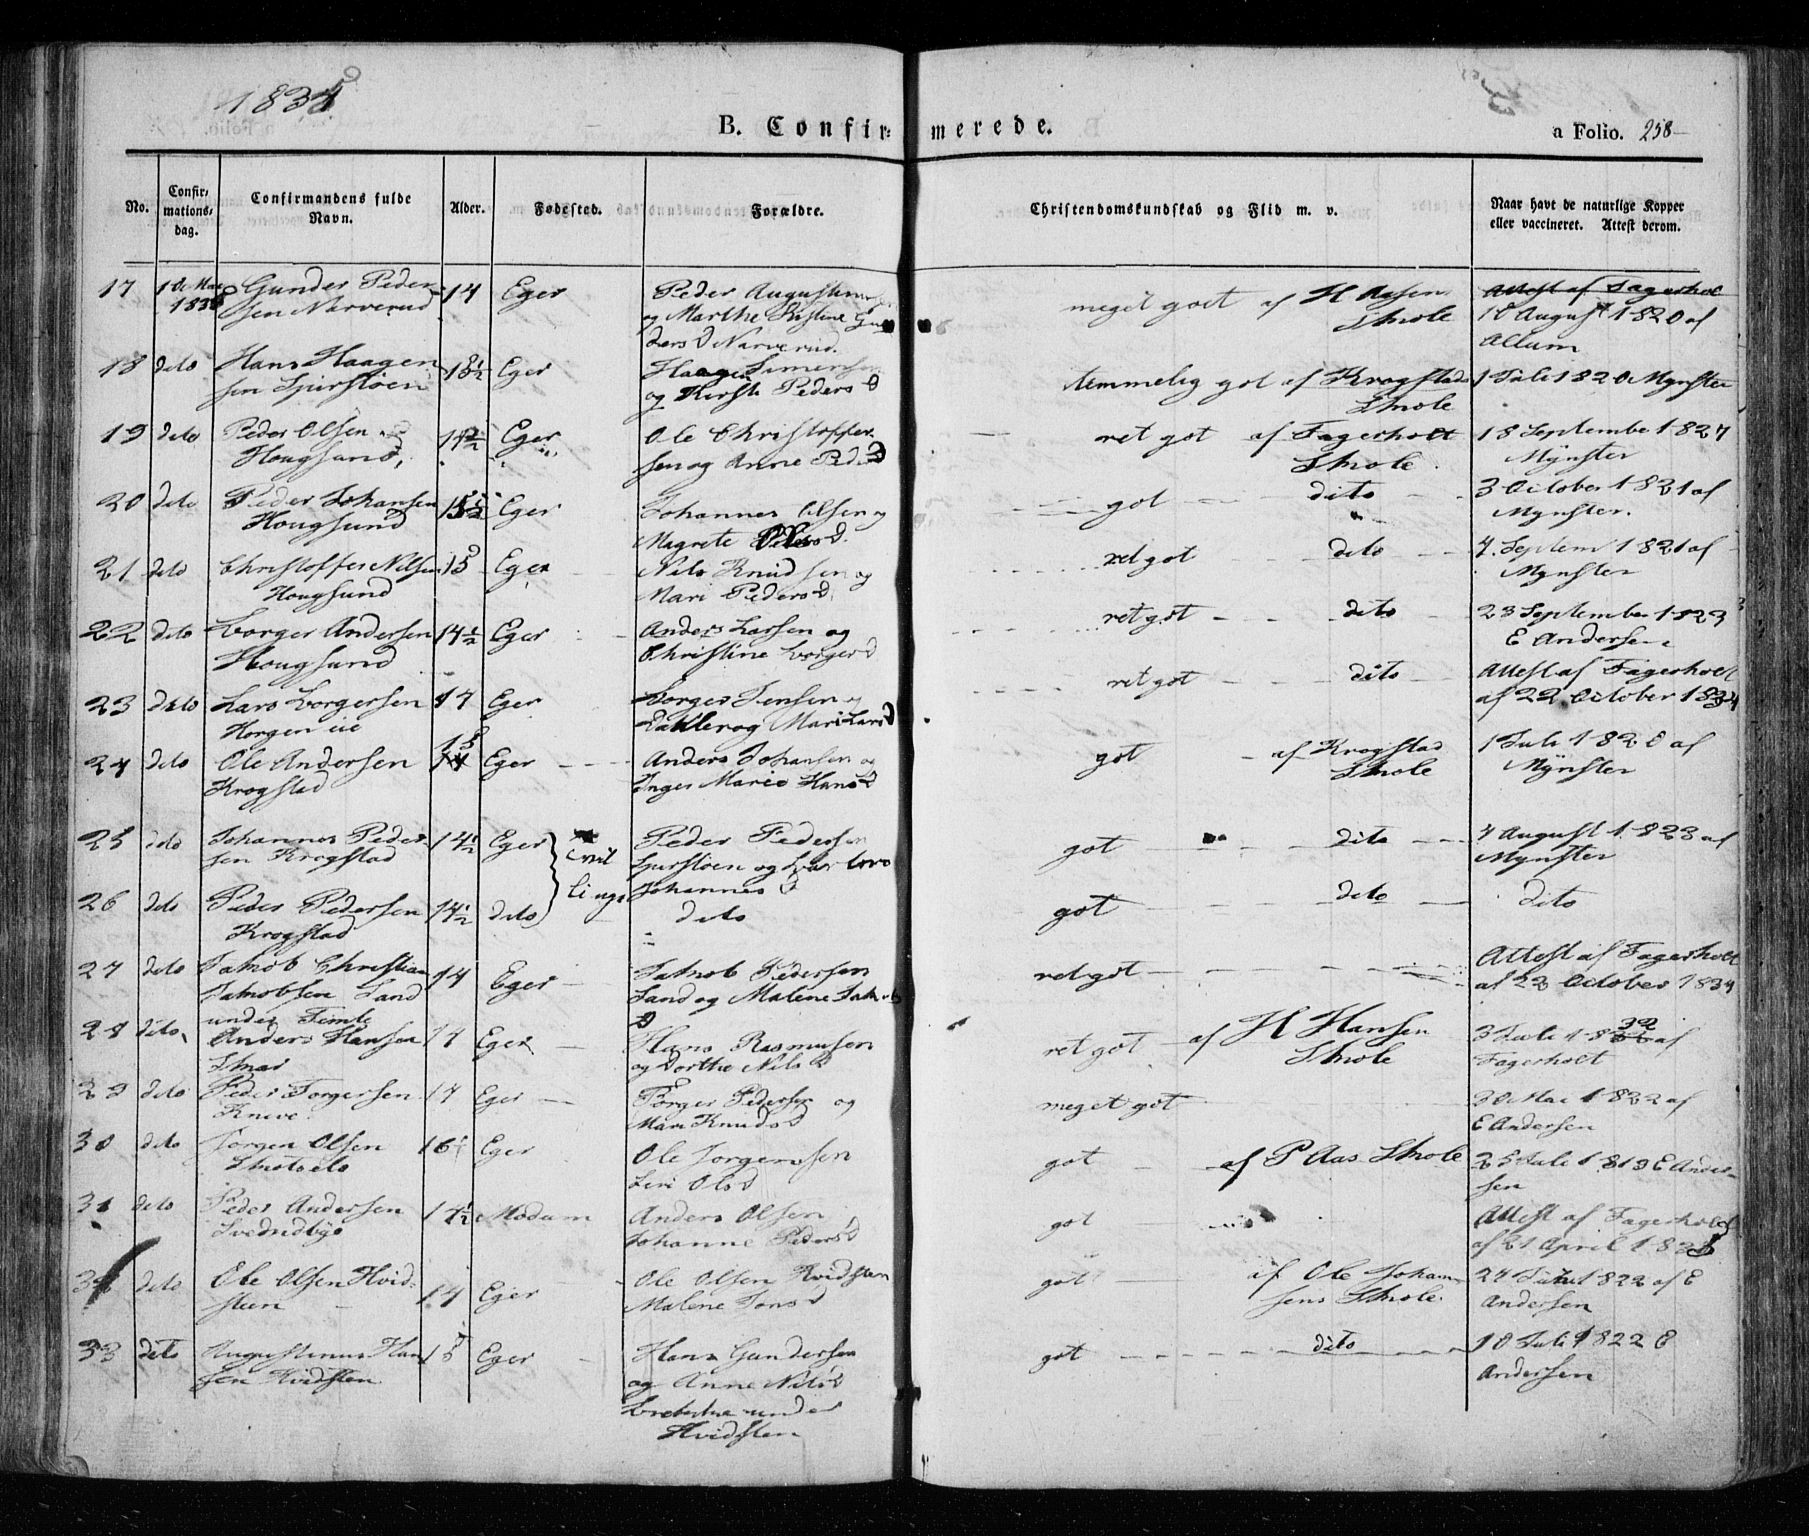 1835
B. Confirmerede.
a Folio. 258
No.
Confirmations-dag.
Confirmandens fulde Navn.
Alder.
Fødested.
Forældre.
Christendomskundskab og Flid m. v.
Naar havt de naturlige Kopper eller vaccineret. Attest derom.
17 Gunder Peder- 14 Eger Peder Augustin meget godt af H Aasen Attest af Fagerholt
sen Narverud og Marthe Kistine Skole 10 August 1820 af
ders D Narverud. Allum
18 dito Hans Haagen Eger Haagen Simensen temmelig got af Krogstads 1 Juli 1820 Mynster
sen og Kirsti Peders D Skole
19 dito Peder Olsen Eger Ole Christoffer ret got af Fagerholt 18 September 1827
Hougsund, sen og Anne Peders D Skole Mynster
20 dito Peder Johansen 15½ Eger Johannes Olsen og got dito 3 October 1821 af
Hougsund Magrete D. Mynster.
21 dito Christoffer Nilsen 15 Eger Nils Knudsen og ret got dito 4. Septem 1821 af
Hougsund Mari Peders D. Mynster
22 dito Borger Andersen 14½ Eger Anders Larsen og ret got dito 23 September 1823
Hougsund Christine Borgers D E Andersen
23 dito Lars Borgersen 17 Eger Borger Jensen og ret got dito Attest af Fagerholt
Horgen eie Mari Lars D af 22 October 1834
24 dito Ole Andersen 15 Eger Anders Johansen og got af Krogstad 1 Juli 1820 af
Krogstad Inger Marie Hans D Skole Mynster
25 dito Johannes Peder- 14½ Eger Tvil Peder Pedersen got dito 4 August 1823 af
sen Krogstad lings og Mynster
Johannes D
26 dito Peder Pedersen 14½ dito dito got dito dito
Krogstad
27 dito Jakob Christian 14 Eger Jakob Pedersen ret got Attest af Fagerholt
Jakobsen Sand Sand og Malene Jakobs af 22 October 1834
under D
28 dito Anders Hansen 17 Eger Hans Rasmusen ret got af H Hansen 3 Juli 1832 af
og Dorthe Nils D Skole Fagerholt
29 dito Peder Torgersen 17 Eger Torger Pedersen og meget got 30 Mai 1822 af
Kneve Mari Knuds D E Andersen
30 dito Jorgen Olsen 16½ Eger Ole Jorgensen got af P Aas Skole 25 Juli 1819 E Ander-
Skotselv Siri Ols D sen
31 dito Peder Andersen 17½ Modum Anders Olsen got Attest af Fagerholt
Johanne Peders D af 21 April 1835
32 dito Ole Olsen Hvid- 17 Eger Ole Olsen Hvidsten got af Ole Johan- 24 1822 af E
steen Malene Jons D sens Skole. Andersen
33 dito Augustinus Han 15 Eger Hans Gundersen got dito 10 Juli 1822 E
sen Hvidsten og Anne Nils D Andersen
under
Hvidsten